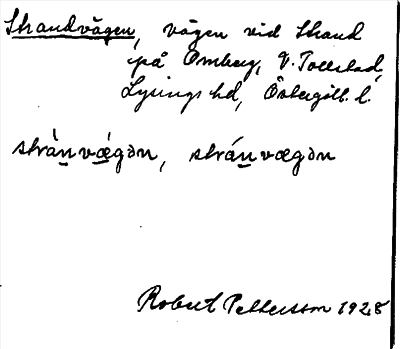 Strandvägen, vägen vid Strand
på Omberg, V. Tollstad,
Lysings hd, Östergötl. l.
strànvǽgən, stránvægən
Robert Pettersson 1928